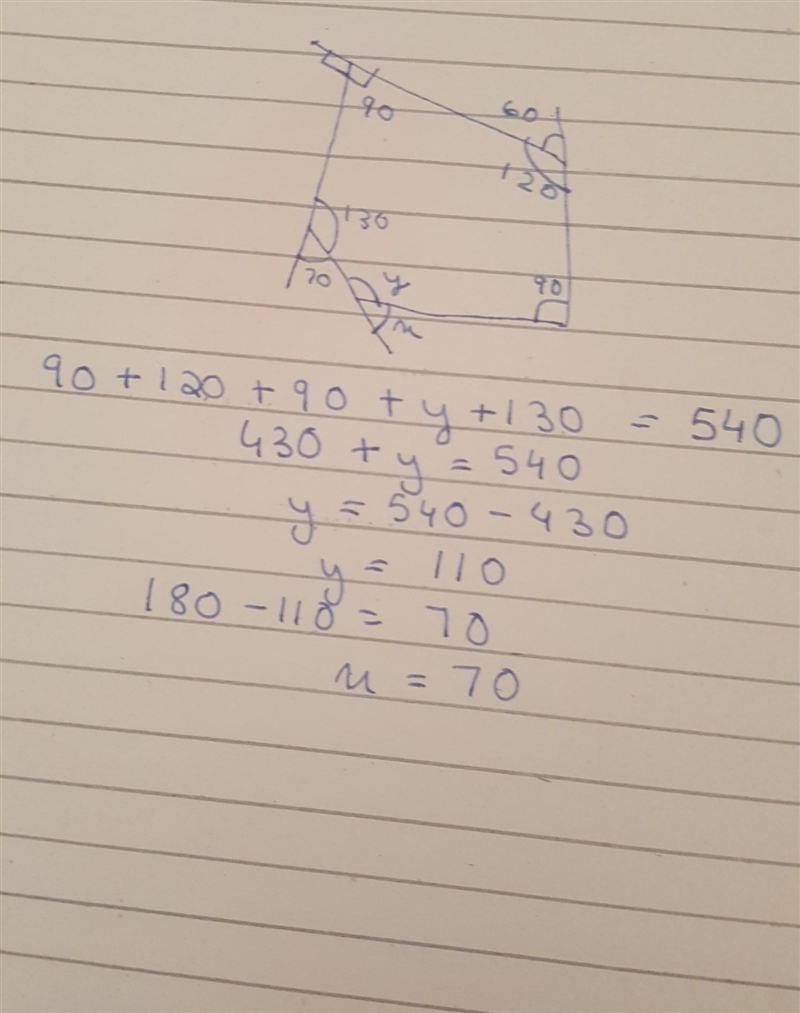 60
90
120
130
90
70 y
x
90 + 120 + 90 + y + 130 = 540
430 + y = 540
y = 540 - 430
y = 110
180 - 110 = 70
x = 70